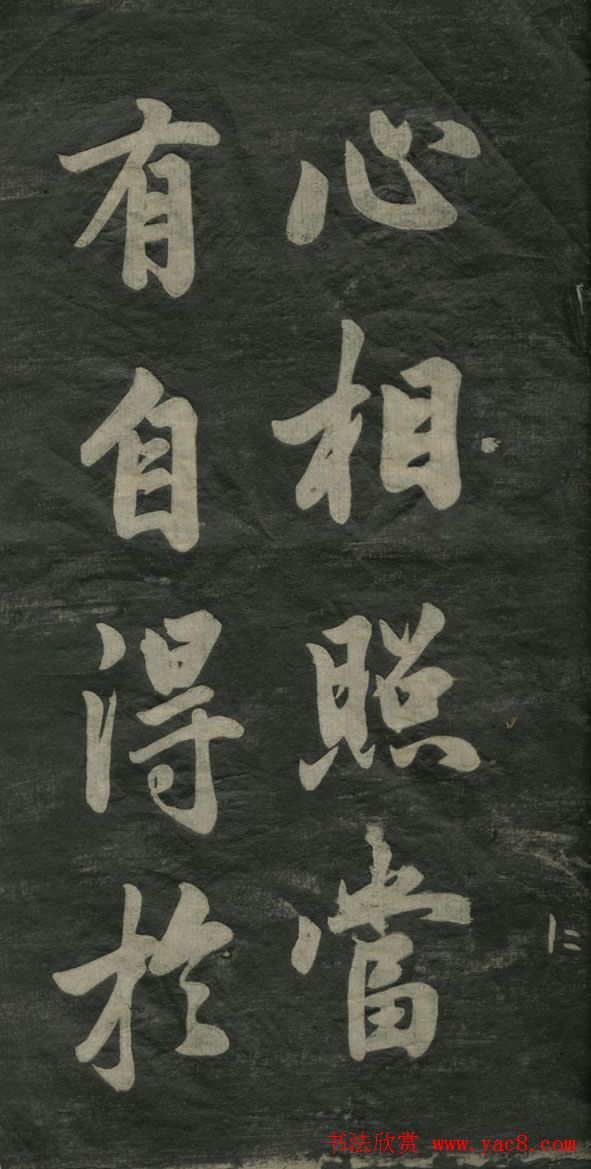 心相照當
有自得於
仁
书法欣赏 www.yac8.com